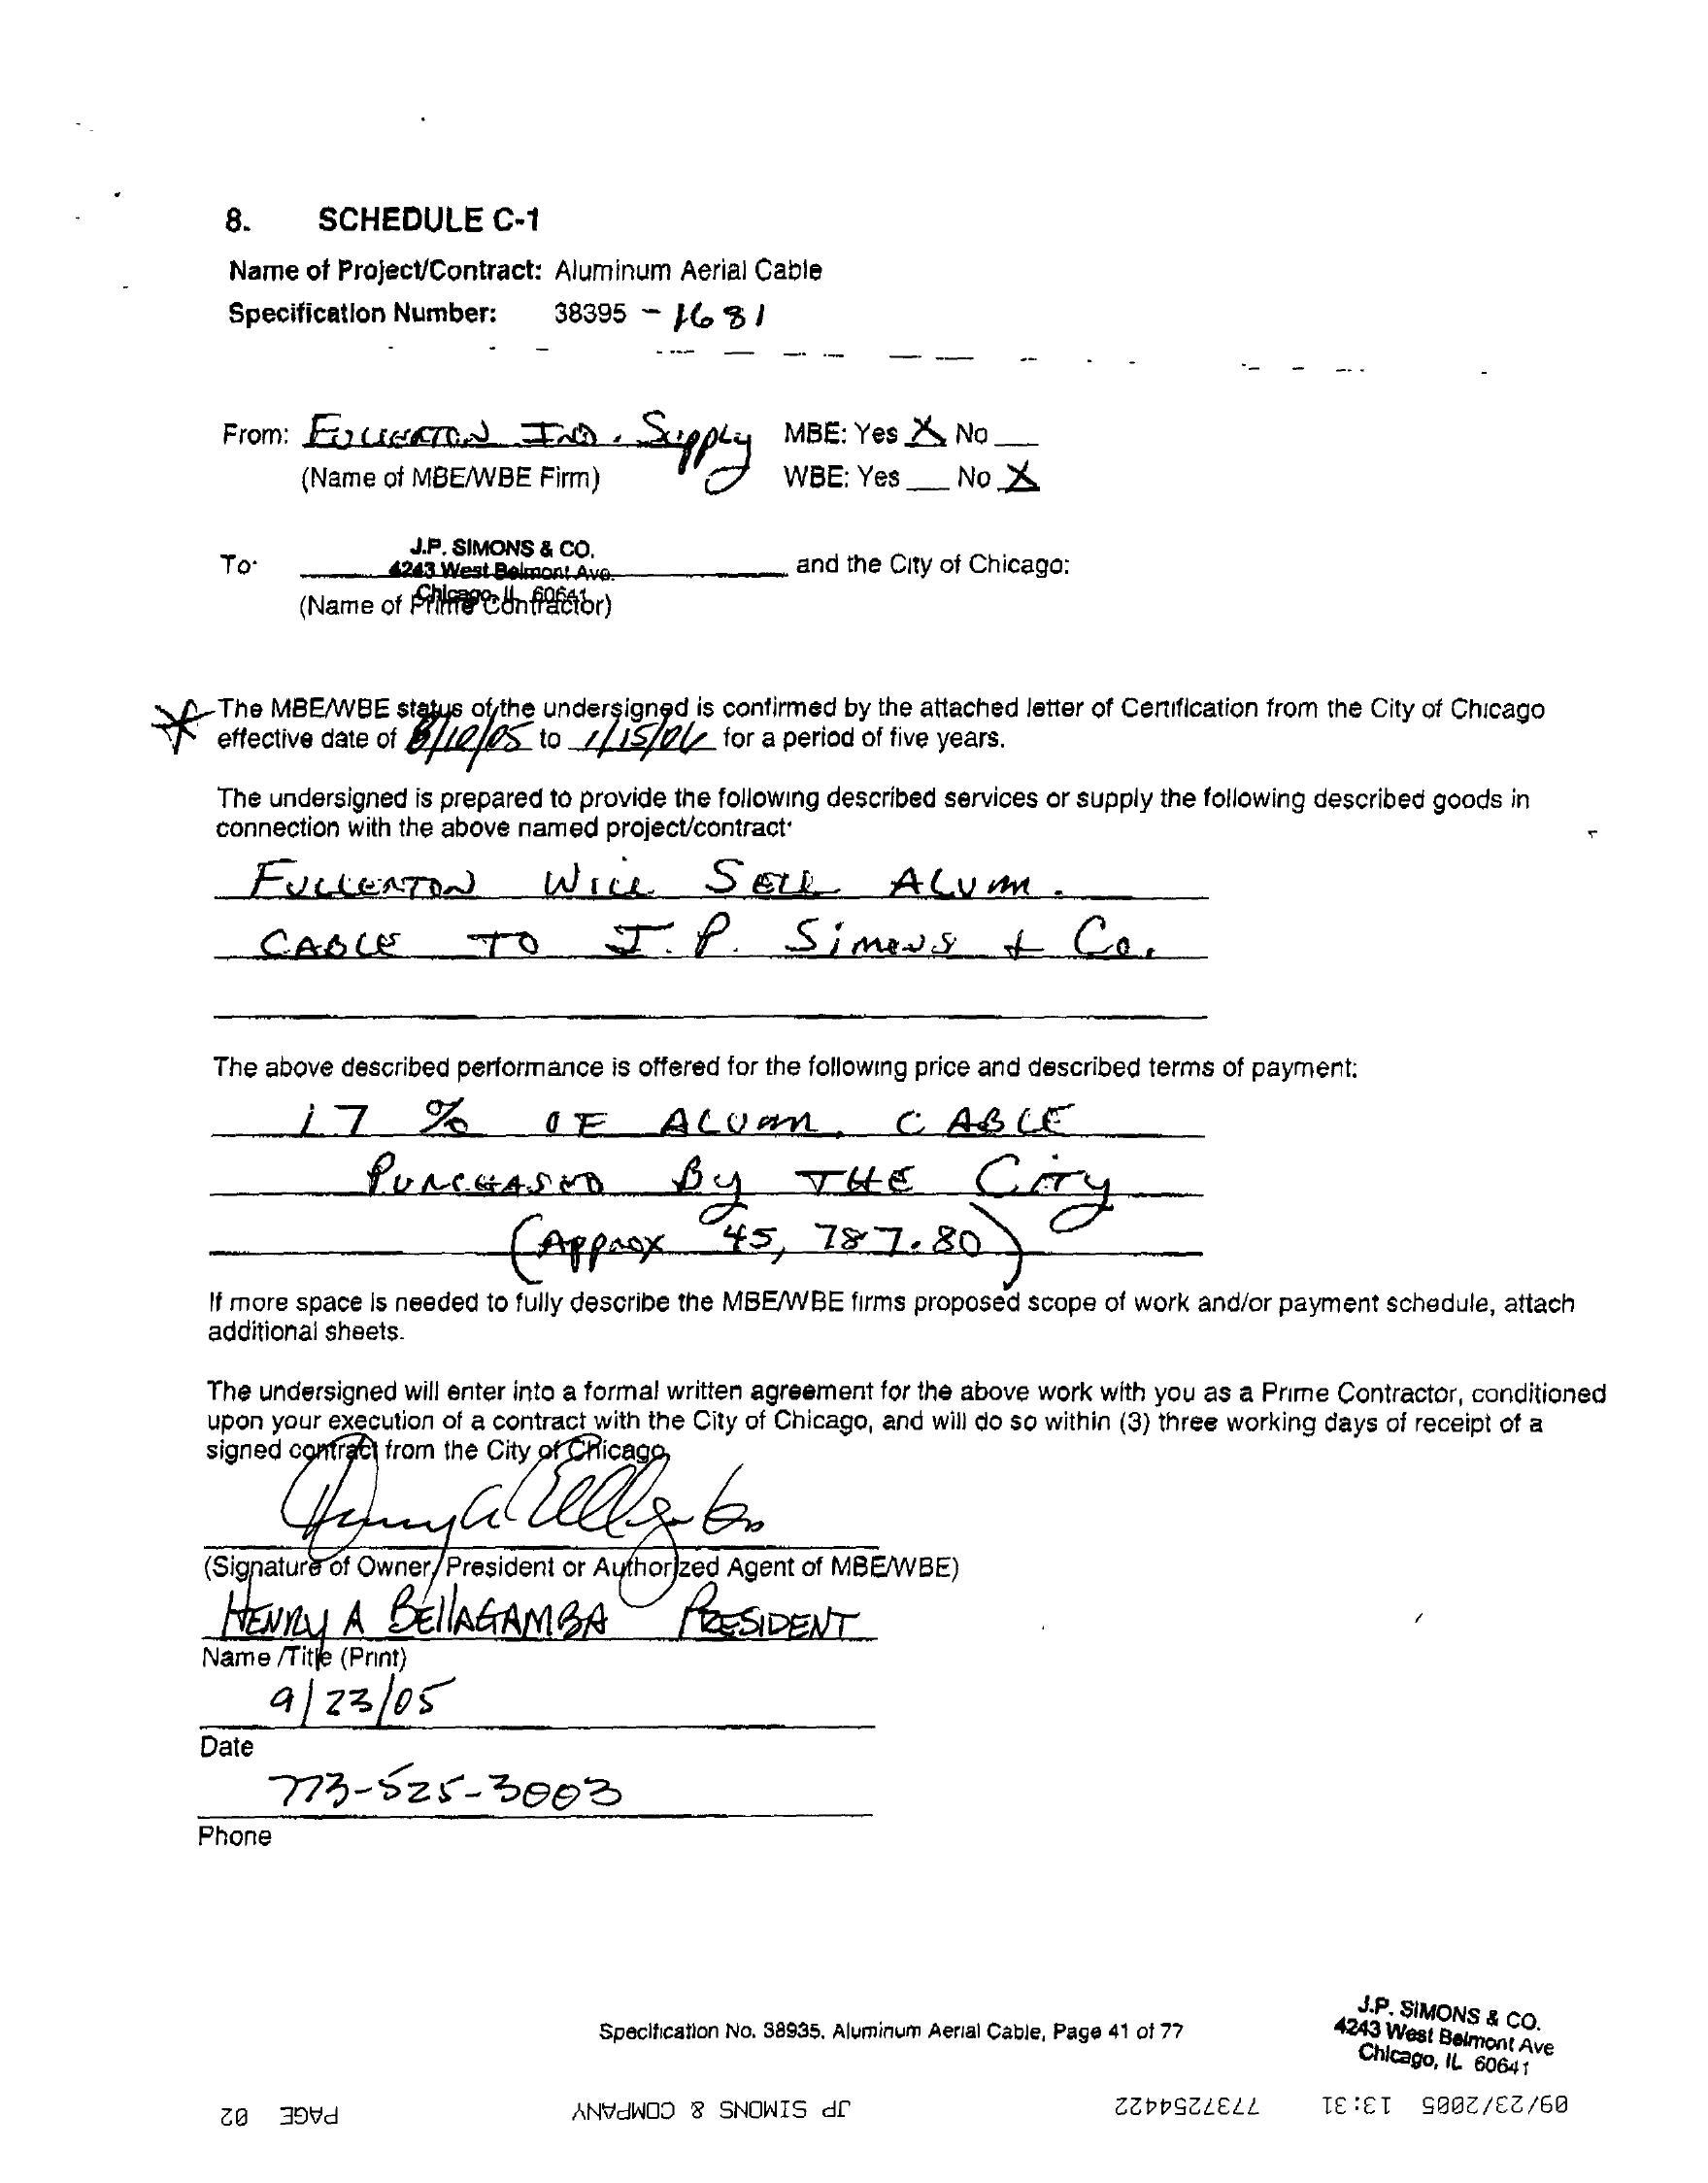 8. SCHEDULE C-1
Name of Project/Contract: Aluminum Aerial Cable
Specification Number: 38395 - 1681
From: FULLERTON IND. Supply MBE: Yes X No
(Name of MBE/WBE Firm) WBE: Yes No X
J.P. SIMONS & CO.
To: 4243 West Belmont Ave. and the City of Chicago:
Chicago, IL 60641
(Name of Prime Contractor)
The MBE/WBE status of the undersigned is confirmed by the attached letter of Certification from the City of Chicago
effective date of 8/10/05 to 1/15/06 for a period of five years.
The undersigned is prepared to provide the following described services or supply the following described goods in
connection with the above named project/contract:
FULLERTON WILL SELL ALUM.
CABLE TO J.P. Simons + Co.
The above described performance is offered for the following price and described terms of payment:
17 % OF ALUM. CABLE
PURCHASED By THE City
(Approx 45,787.80)
If more space is needed to fully describe the MBE/WBE firms proposed scope of work and/or payment schedule, attach
additional sheets.
The undersigned will enter into a formal written agreement for the above work with you as a Prime Contractor, conditioned
upon your execution of a contract with the City of Chicago, and will do so within (3) three working days of receipt of a
signed contract from the City of Chicago.
Henry A Bellagamba
(Signature of Owner, President or Authorized Agent of MBE/WBE)
HENRY A BELLAGAMBA PRESIDENT
Name /Title (Print)
9/23/05
Date
773-525-3003
Phone
Specification No. 38935, Aluminum Aerial Cable, Page 41 of 77
J.P. SIMONS & CO.
4243 West Belmont Ave
Chicago, IL 60641
09/23/2005 13:31 7737254422 JP SIMONS & COMPANY PAGE 02